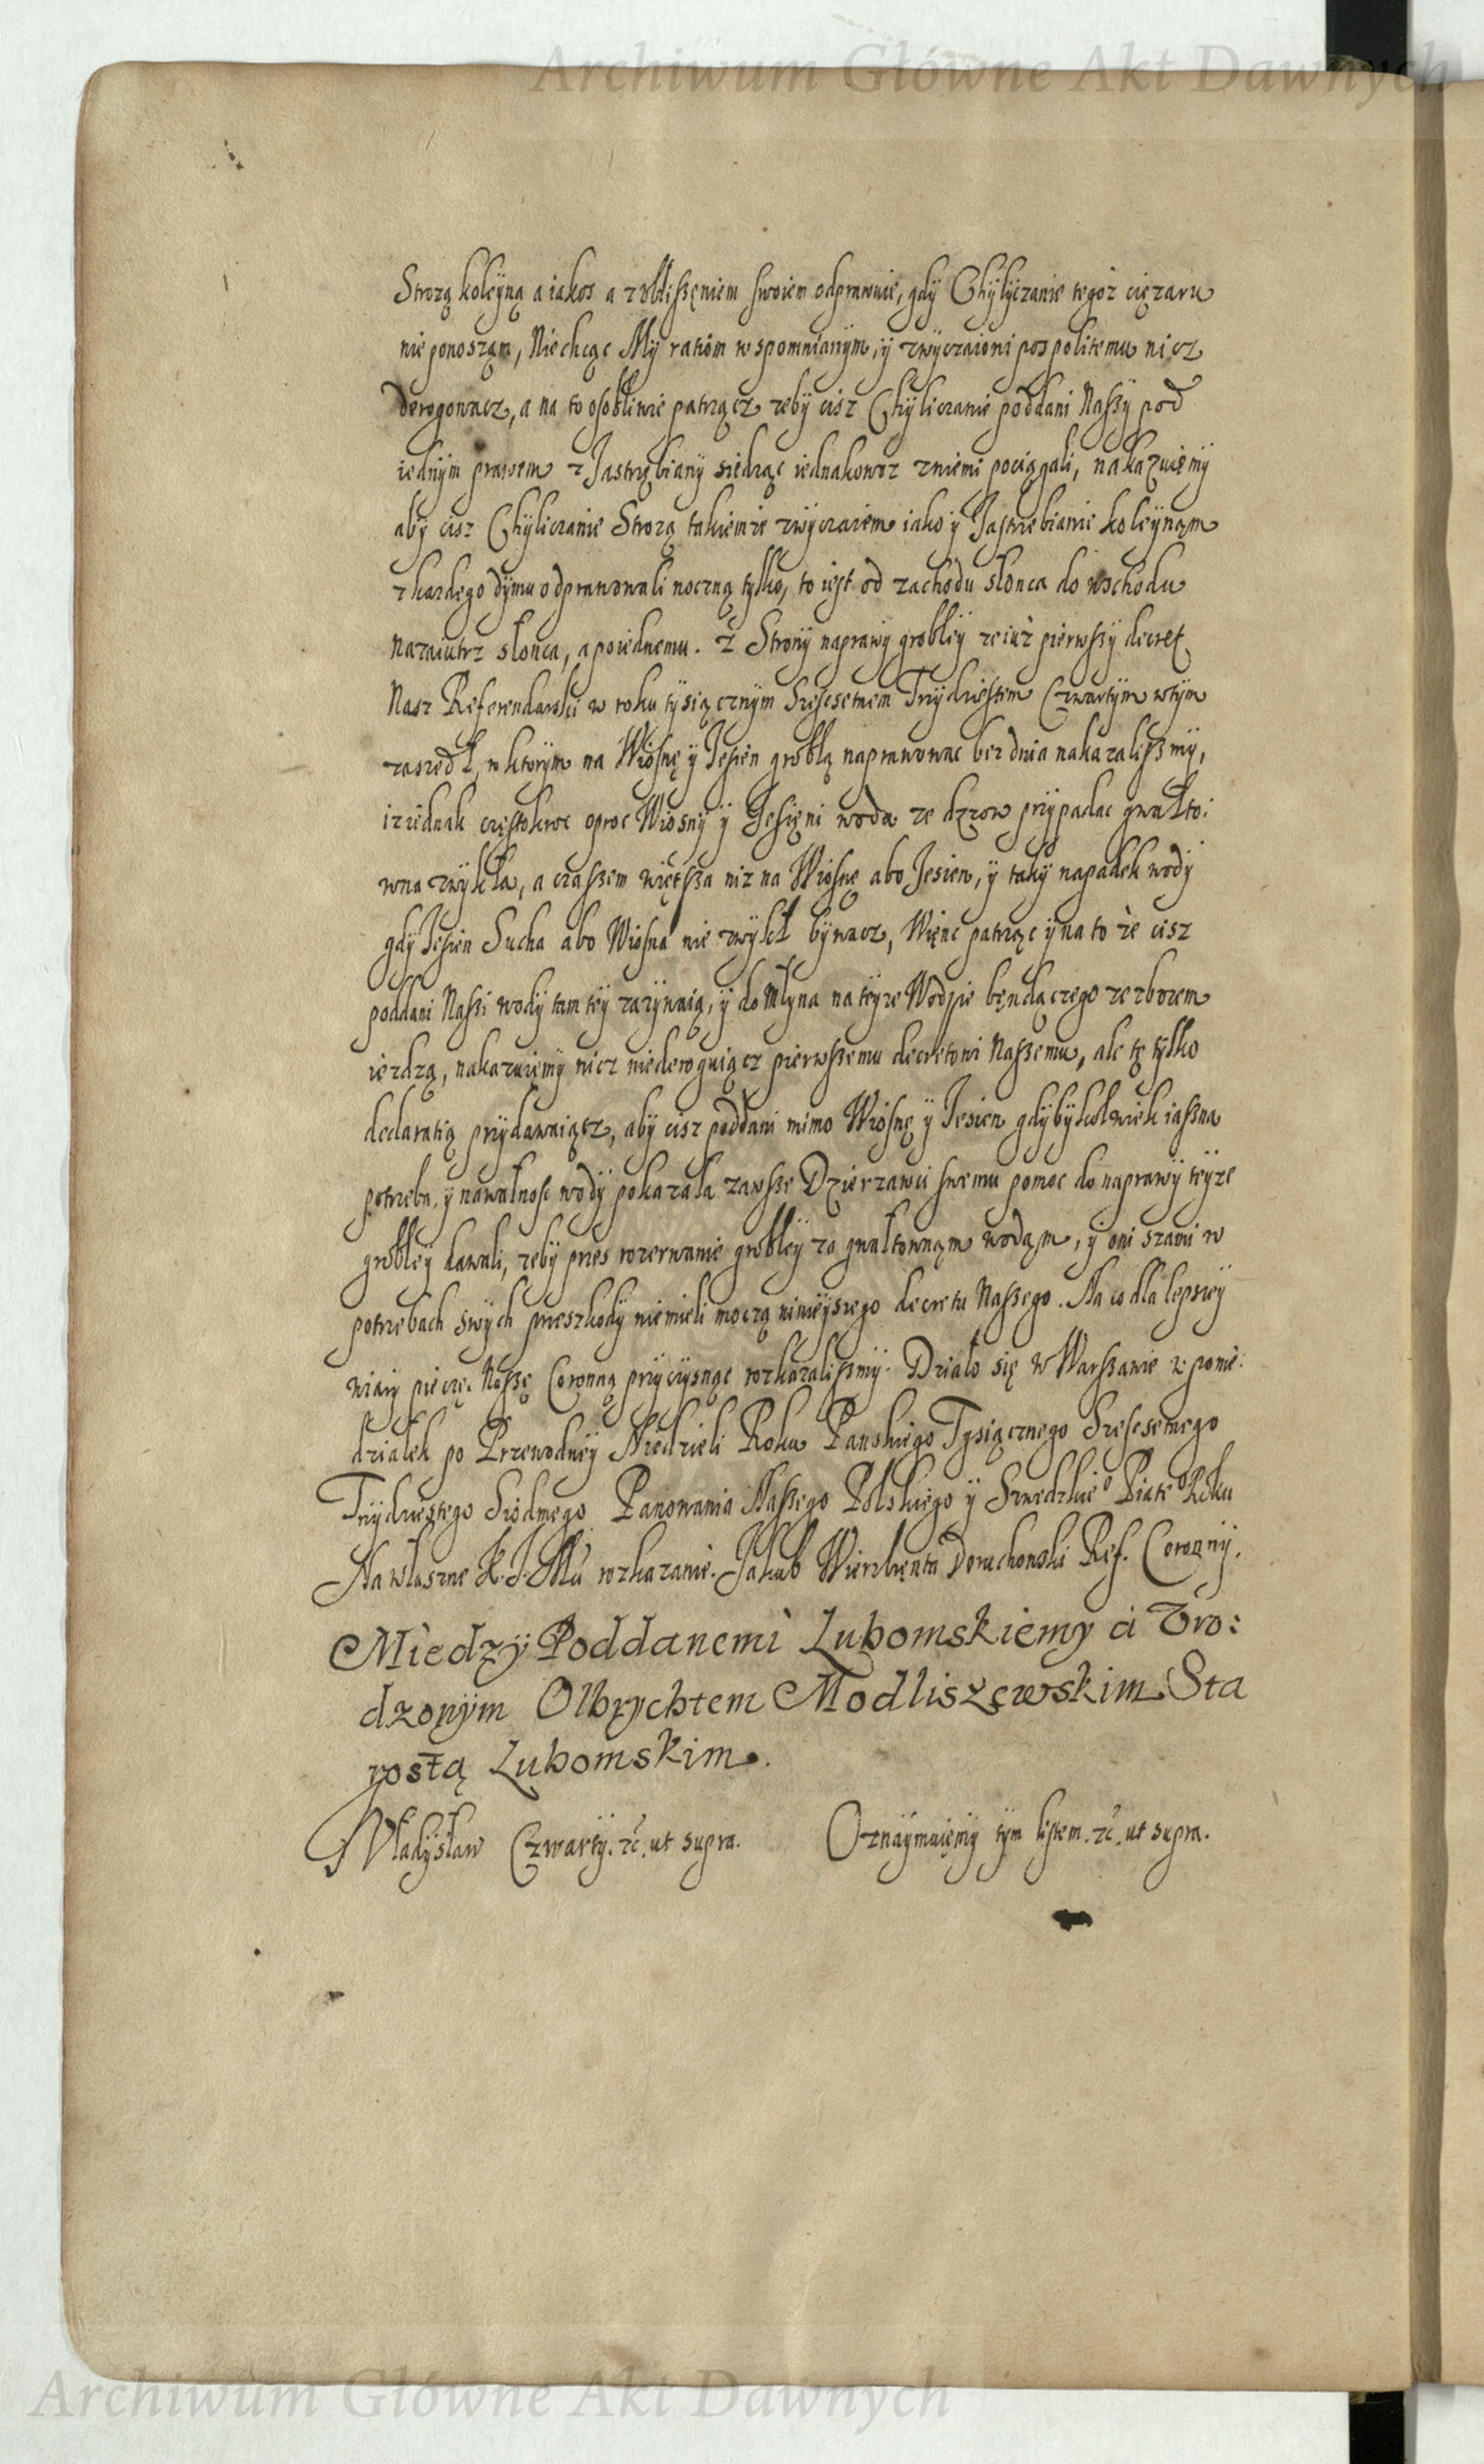 Archiwum Główne Akt Dawnych
Strożą koleyną a iakos a z ubliszęniem swoiem odprawuie, gdÿ Chÿlÿczanie tegoż cięzaru
nie ponoszęm, Niechcąc Mÿ ratiom wspomnianÿm, ÿ zwÿczaioni pospolitemu nicz
derogowacz, a na to osobliwie patrzącz zebÿ cisz Chÿliczanie poddani Naszÿ pod
iednÿm prawem z Jastrzębianÿ siedząc iednakowoz zniemi pociągali, nakazuięmÿ
abÿ cisz Chÿliczanie Strozą takiemze zwÿczaiem iako ÿ Jastrzebianie koleynąm
z kazdego dÿmu odprawowali noczną tÿlko, to iest od zachodu słonca do wschodu
nazaiutrz słonca, a poiednemu. Z Stronÿ naprawÿ groblÿ ze iuż pierwszÿ decret
Nasz Referendarski w roku tÿsiącznÿm szescsetnem Trzÿdziestem Czwartÿm wtÿm
zaszedł, w ktorÿm na Wiosnę ÿ Jesien groblą naprawowac bez dnia nakazaliszmÿ,
iz iednak częstokroc oproc Wiosnÿ ÿ Jesięni woda ze dzzow przÿpadac gwałto:
wna zwÿkła, a czaszem więtsza niz na Wiosnę abo Jesien, ÿ takÿ napadek wodÿ
gdÿ Jesien Sucha abo Wiosna nie zwÿkł bÿwacz, Więnc patrząc ÿ na to że cisz
poddani Naszi wodÿ tamteÿ zazÿwaią, ÿ do Młÿna na teÿze Wodzie będączego ze zbozem
iezdzą, nakazuięmÿ nicz niederoguiącz pierwszemu decretowi Naszemu, ale tę tÿlko
declaratią przÿdawaiącz, abÿ cisz poddani mimo Wiosnę ÿ Jesien gdÿbÿkolwiek iaszna
potrzeba, ÿ nawałnosc wodÿ pokazała zawsze Dzierzawci swemu pomoc do naprawÿ teÿze
grobleÿ dawali, zebÿ przes rozerwanie grobleÿ za gwałtownąm wodąm, ÿ oni szami w
potrzebach swÿch przeszkodÿ niemieli moczą ninieÿszego decretu Naszego. Na co dla lepszeÿ
wiarÿ pieczęc Naszę Coronną przÿcÿsnąc rozkazaliszmÿ. Działo się w Warszawie w ponie:
działek po Przewodneÿ Niedzieli Roku Panskiego Tysiącznego Szescsetnego
Trzÿdziestego Siodmego Panowania Naszego Polskiego ÿ Szwedzkieo Piateo Roku
Na własne K.J.Mci rozkazanie. Jakub Wierzbęnta Doruchowski Ref. Coronnÿ.
Miedzÿ Poddanemi Lubomskiemy a Uro:
dzonÿm Olbrychtem Modliszęwskim Sta
rostą Lubomskim.
Władÿsław Czwartÿ. &c. ut supra. Oznaÿmuięmÿ tÿm listem. &c. ut supra.
Archiwum Główne Akt Dawnych